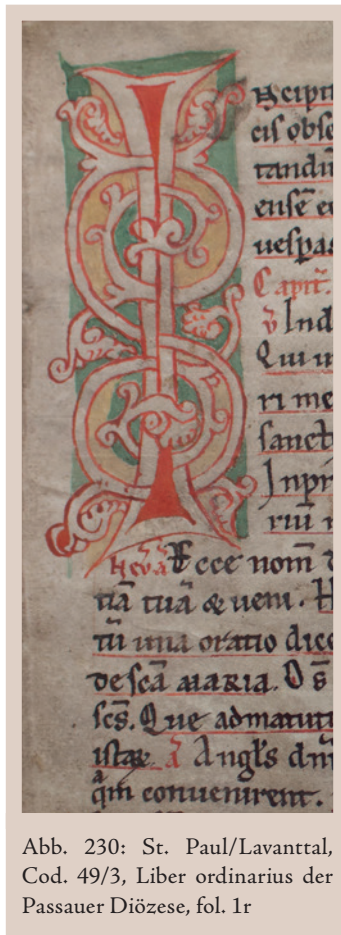 Incipit
cis obse
tandu
ense
vespas
Capit.
v Ind
Qui
ri me
sanct
Inpr
riu
Ecce nom
tiā tuā & veni. H
tū una oratio dice
de scā MARIA. Ds
scs. Que admatuti
istas a Angls dm
qm convenirent.
Abb. 230: St. Paul/Lavanttal,
Cod. 49/3, Liber ordinarius der
Passauer Diözese, fol. 1r